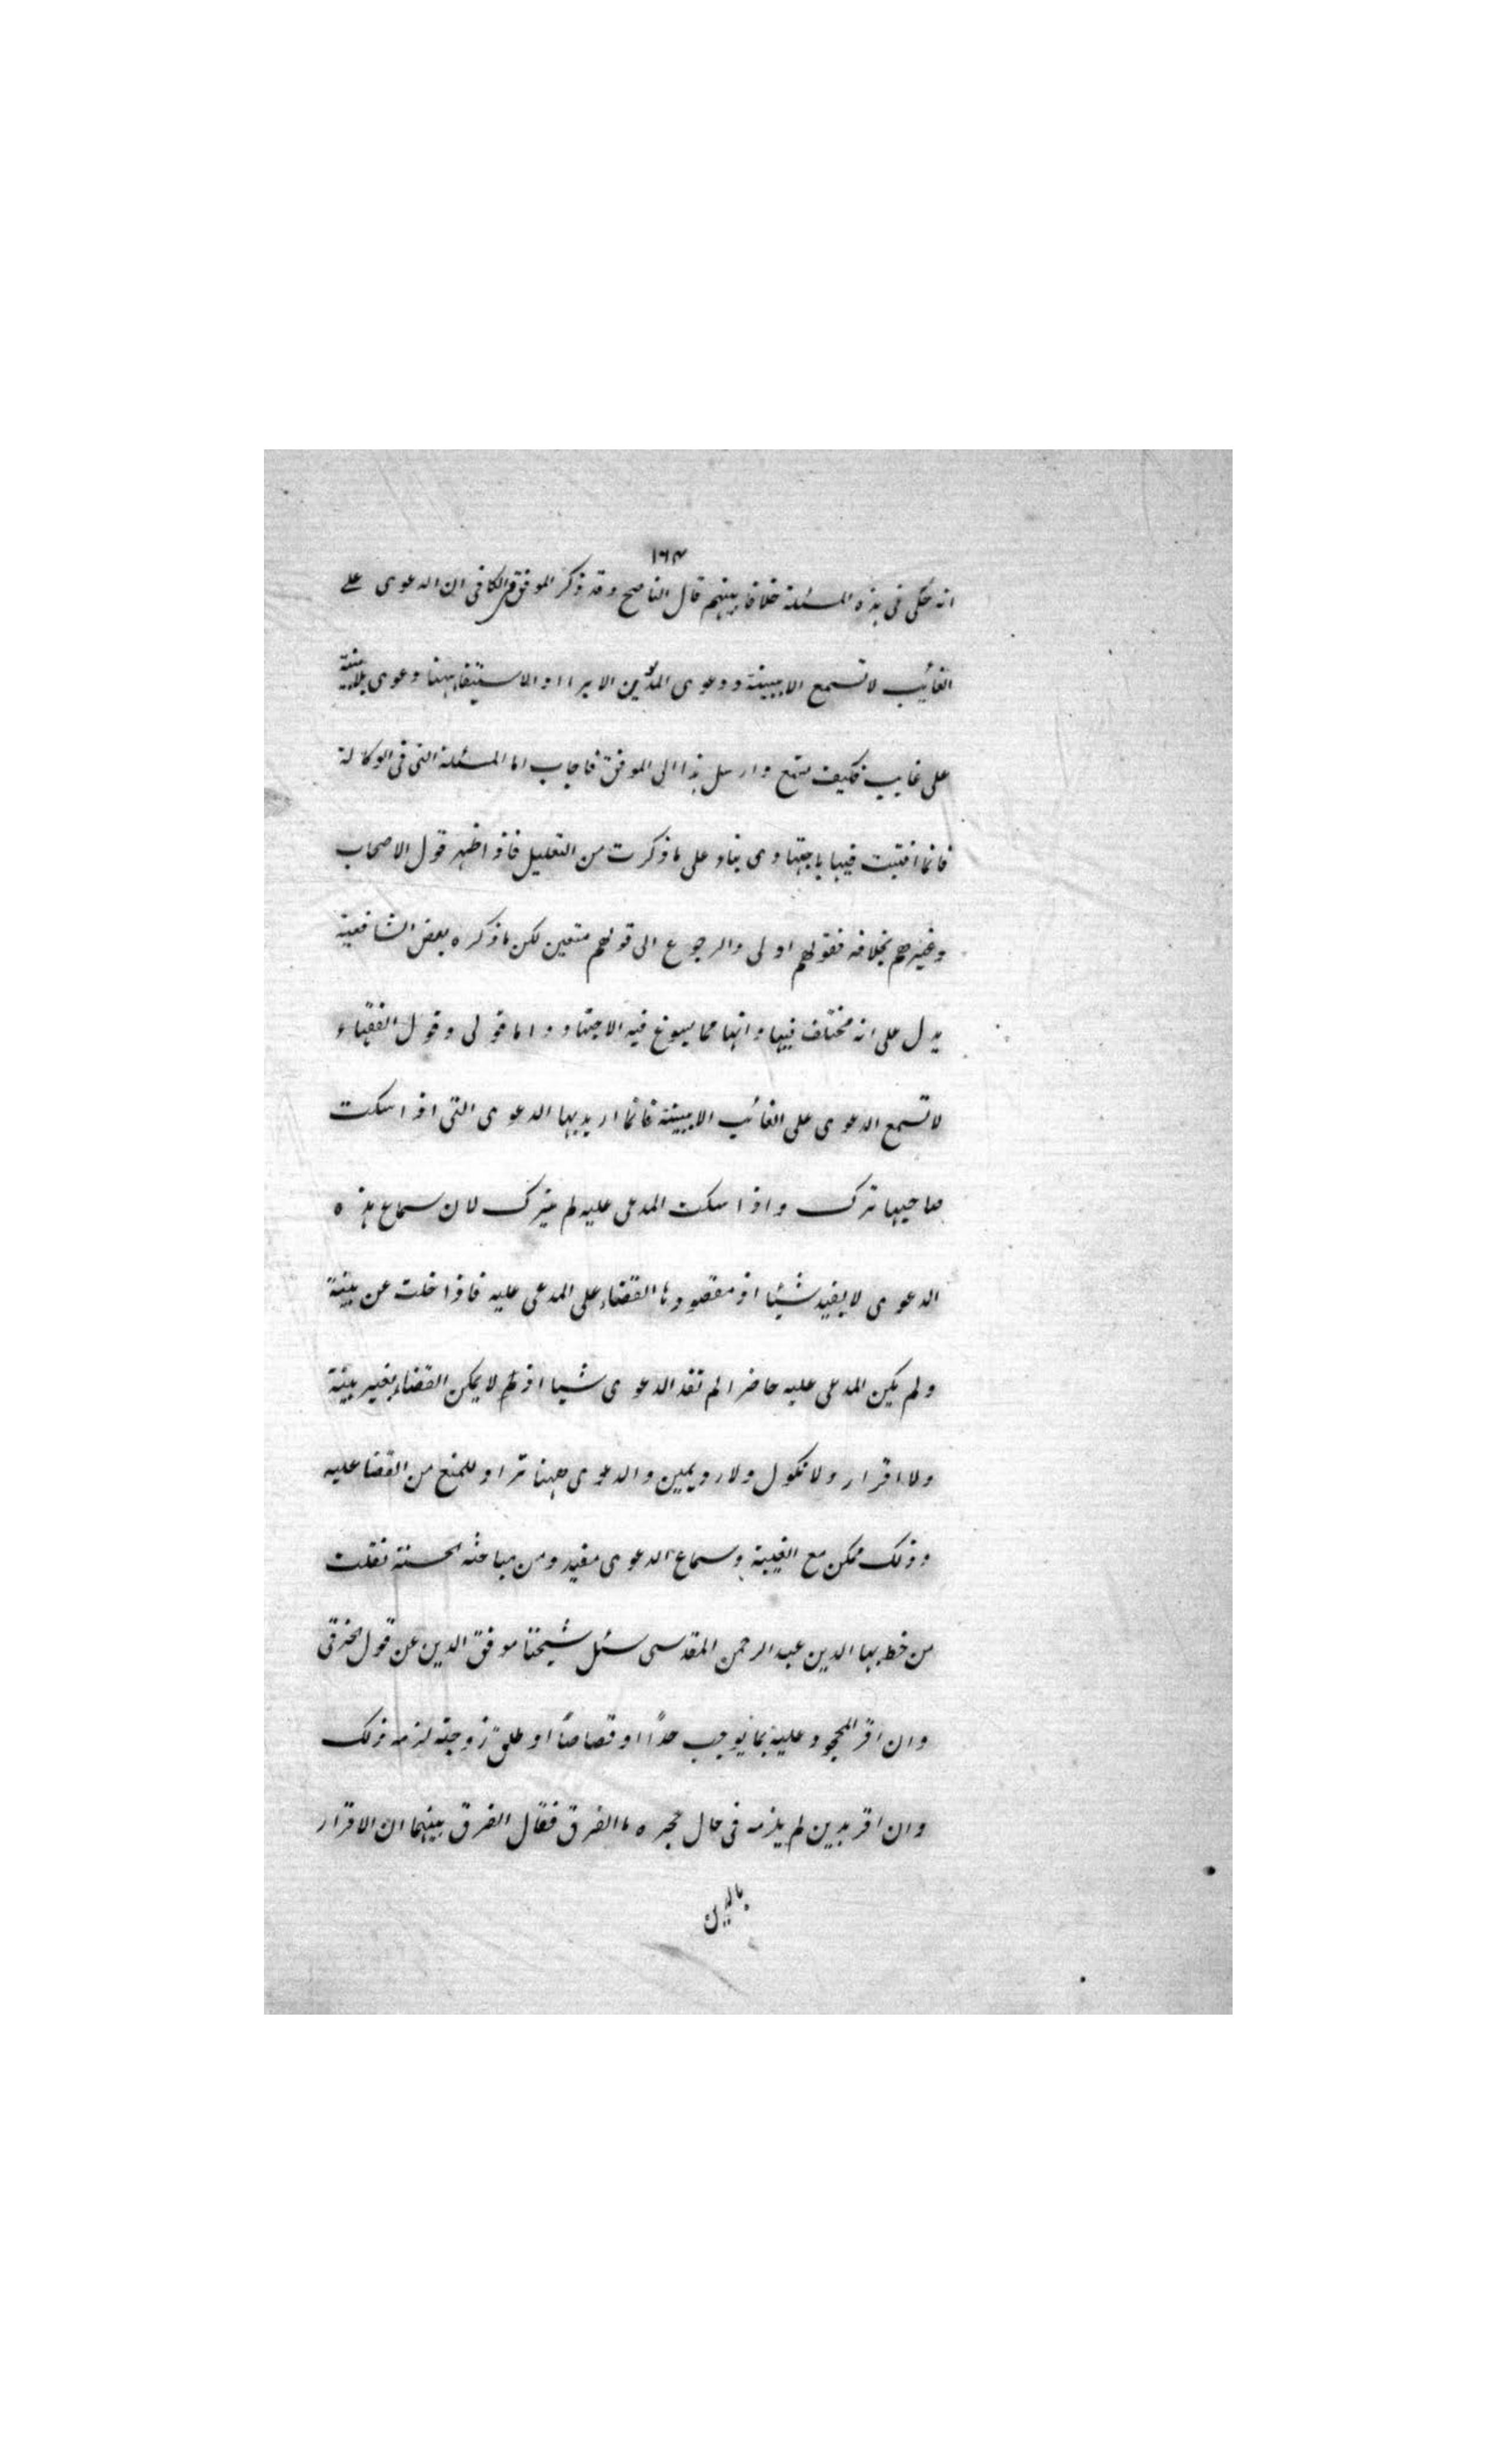 ١٦٣
انه حكى في هذه المسئلة خلافا بينهم قال الناصح وقد ذكر الموفق في الكافي ان الدعوى على
الغائب لا تسمع الا ببينة ودعوى المديون الابراء او الاستيفاء ههنا دعوى بلا بينة
على غايب فكيف تسمع وارسل هذا الى الموفق فاجاب اما المسئلة التي في الوكالة
فانما افتيت فيها باجتهادى بناء على ما ذكرت من التعليل فاذا ظهر قول الاصحاب
وغيرهم بخلافه فقولهم اولى والرجوع الى قولهم متعين لكن ما ذكره بعض الشافعية
يدل على انه مختلف فيها وانها مما يسوغ فيه الاجتهاد واما قولى وقول الفقهاء
لا تسمع الدعوى على الغائب الا ببينة فانما اريد بها الدعوى التى اذا سكت
صاحبها ترك واذا سكت المدعى عليه لم يترك لان سماع هذه
الدعوى لا يفيد شيئا اذ مقصودها القضاء على المدعى عليه فاذا خلت عن بينة
ولم يكن المدعى عليه حاضرا لم تفد الدعوى شيا اذ لا يمكن القضاء بغير بينة
ولا اقرار ولا نكول ولا رد يمين والدعوى ههنا تراد للمنع من القضا عليه
وذلك ممكن مع الغيبة وسماع الدعوى مفيد ومن مباحثه الحسنة نقلت
من خط بها الدين عبد الرحمن المقدسى سئل شيخنا موفق الدين عن قول الخرقى
وان اقر المحجور عليه بما يوجب حدًا او قصاصًا او طلق زوجته لزمه ذلك
وان اقر بدين لم يلزمه فى حال حجره ما الفرق فقال الفرق بينهما ان الاقرار
بالدين